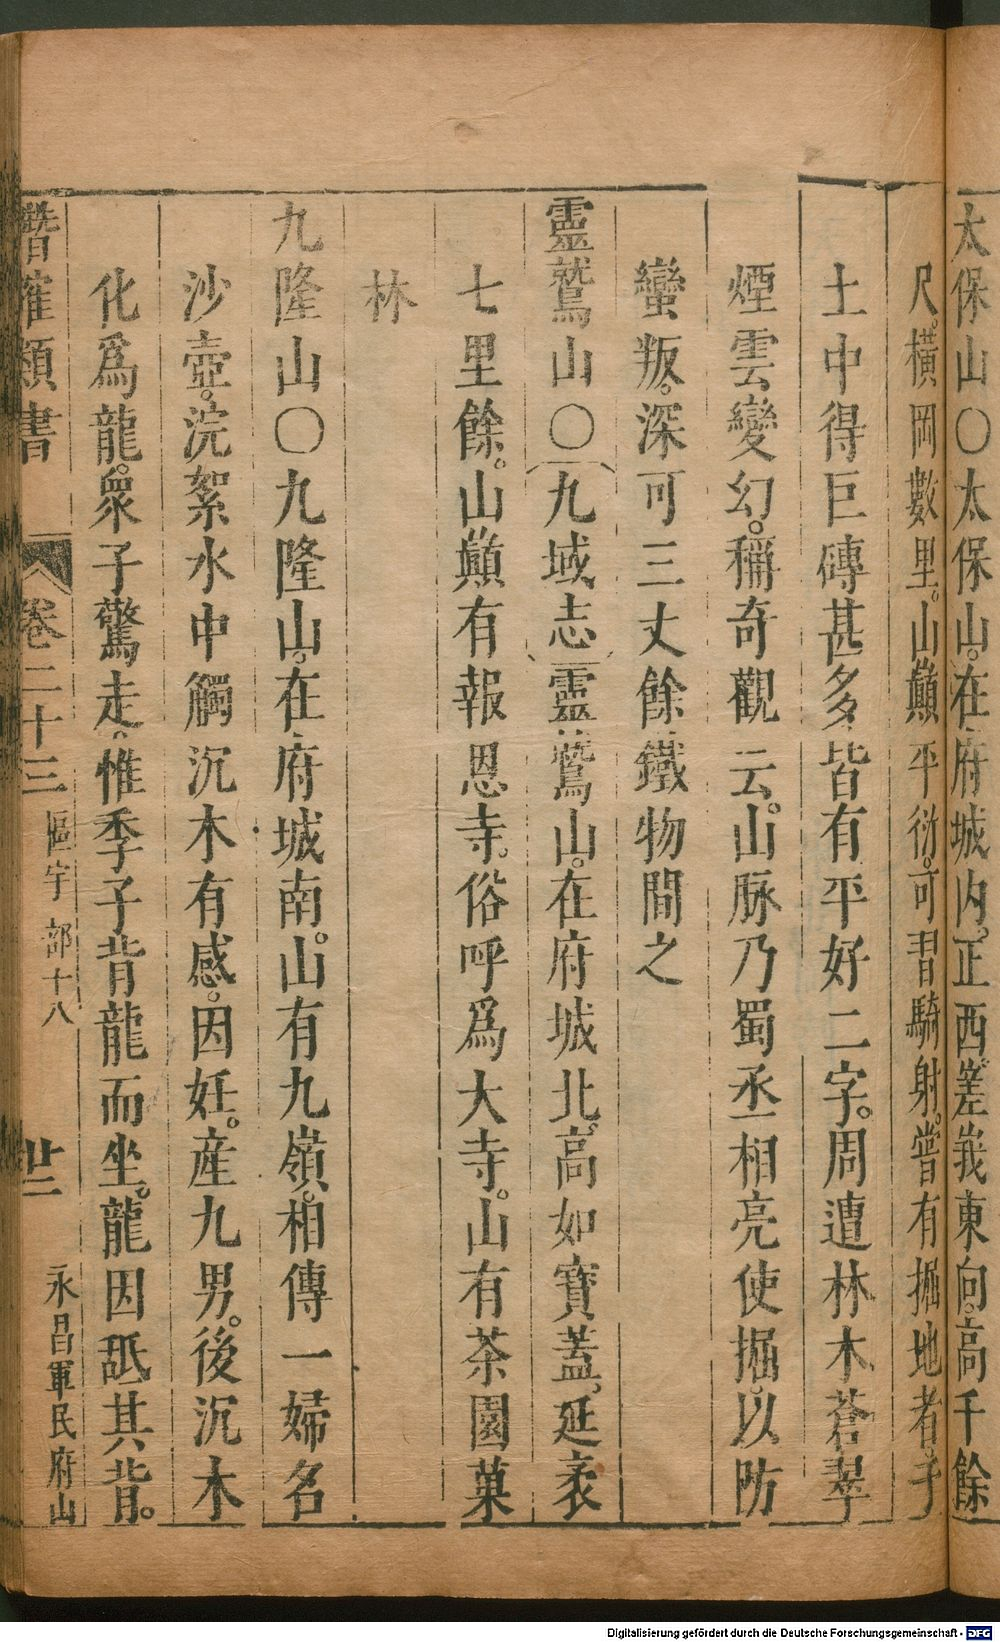 太保山〇太保山。在府城內。正西。嵳峩東向。高千餘
尺。橫岡數里。山巔平衍。可習騎射。嘗有掘地者。于
土中得巨磚甚多皆有平好二字。周遭林木蒼翠
煙雲變幻。稱奇觀云。山脉乃蜀丞相亮使掘。以防
蠻叛。深可三丈餘鐵物間之
靈鷲山〇九域志靈鷲山。在府城北。高如寶蓋。延袤
七里餘。山巔有報恩寺。俗呼爲大寺。山有茶園菓
林
九隆山〇九隆山。在府城南。山有九嶺。相傳一婦名
沙壺。浣絮水中觸沉木有感。因妊。産九男。後沉木
化爲龍。衆子驚走。惟季子背龍而坐。龍因舐其背。
潛確類書 卷二十三 區宇部十八 廿二 永昌軍民府山
Digitalisierung gefördert durch die Deutsche Forschungsgemeinschaft - DFG